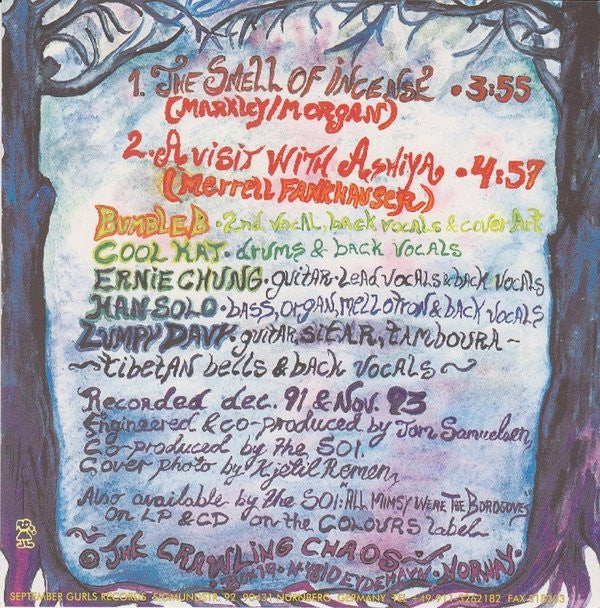 1. The Smell of Incense • 3:55
(Markley/Morgan)
2. A Visit With Ashiya • 4:57
(Merrell Fankhauser)
Bumble B • 2nd vocal, back vocals & cover art
Cool Kat • drums & back vocals
Ernie Chung • guitar • Lead vocals & back vocals
Han Solo • bass, organ, mellotron & back vocals
Lumpy Davy • guitar, sitar, tamboura ~
~ tibetan bells & back vocals ~
Recorded dec. 91 & Nov. 93
Engineered & co-produced by Tom Samuelsen,
Co-produced by the SOI.
Cover photo by Kjetil Remen,
Also available by the SOI: "All Mimsy Were The Borogoves"
on LP & CD on the COLOURS Label
© The Crawling Chaos
Norway
SEPTEMBER GURLS RECORDS SIGMUNDSTR. 92 90431 NÜRNBERG GERMANY TEL +49 911-3262182 FAX